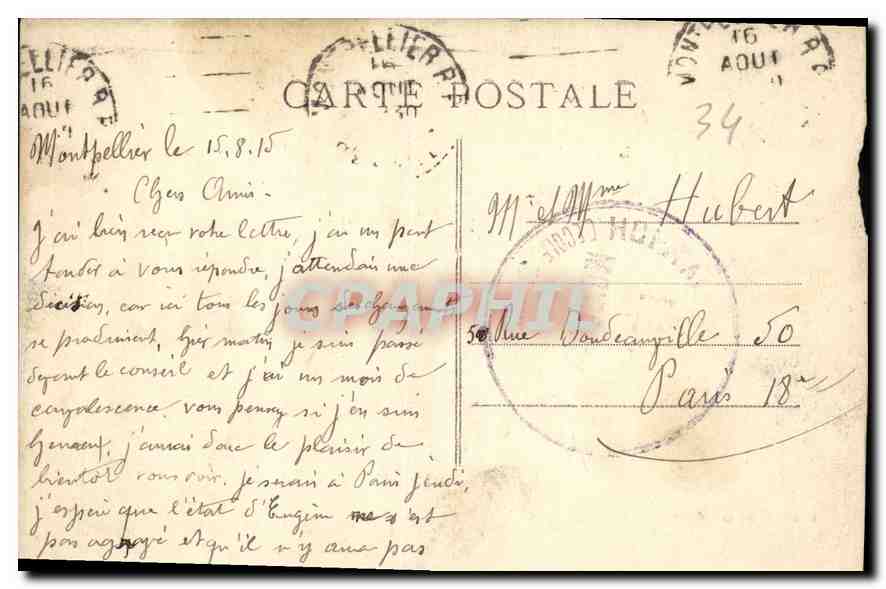 MONTPELLIER R. P.
16
AOUT
CARTE POSTALE
34
Montpellier le 15.8.15
Chers Amis -
J'ai bien reçu votre lettre, j'ai un peu
tarder à vous répondre, j'attendais une
décision, car ici tous les jours des changements
se produisent, hier matin je suis passé
devant le conseil et j'ai un mois de
convalescence vous pensez si j'en suis
heureux, j'aurai donc le plaisir de
bientôt vous voir. je serais à Paris jeudi,
j'espère que l'état d'Eugène ne s'est
pas aggravé et qu'il n'y aura pas
Mr et Mme Hubert
50 Rue Doudeauville 50
Paris 18e
HOPITAL
CPAPHIL